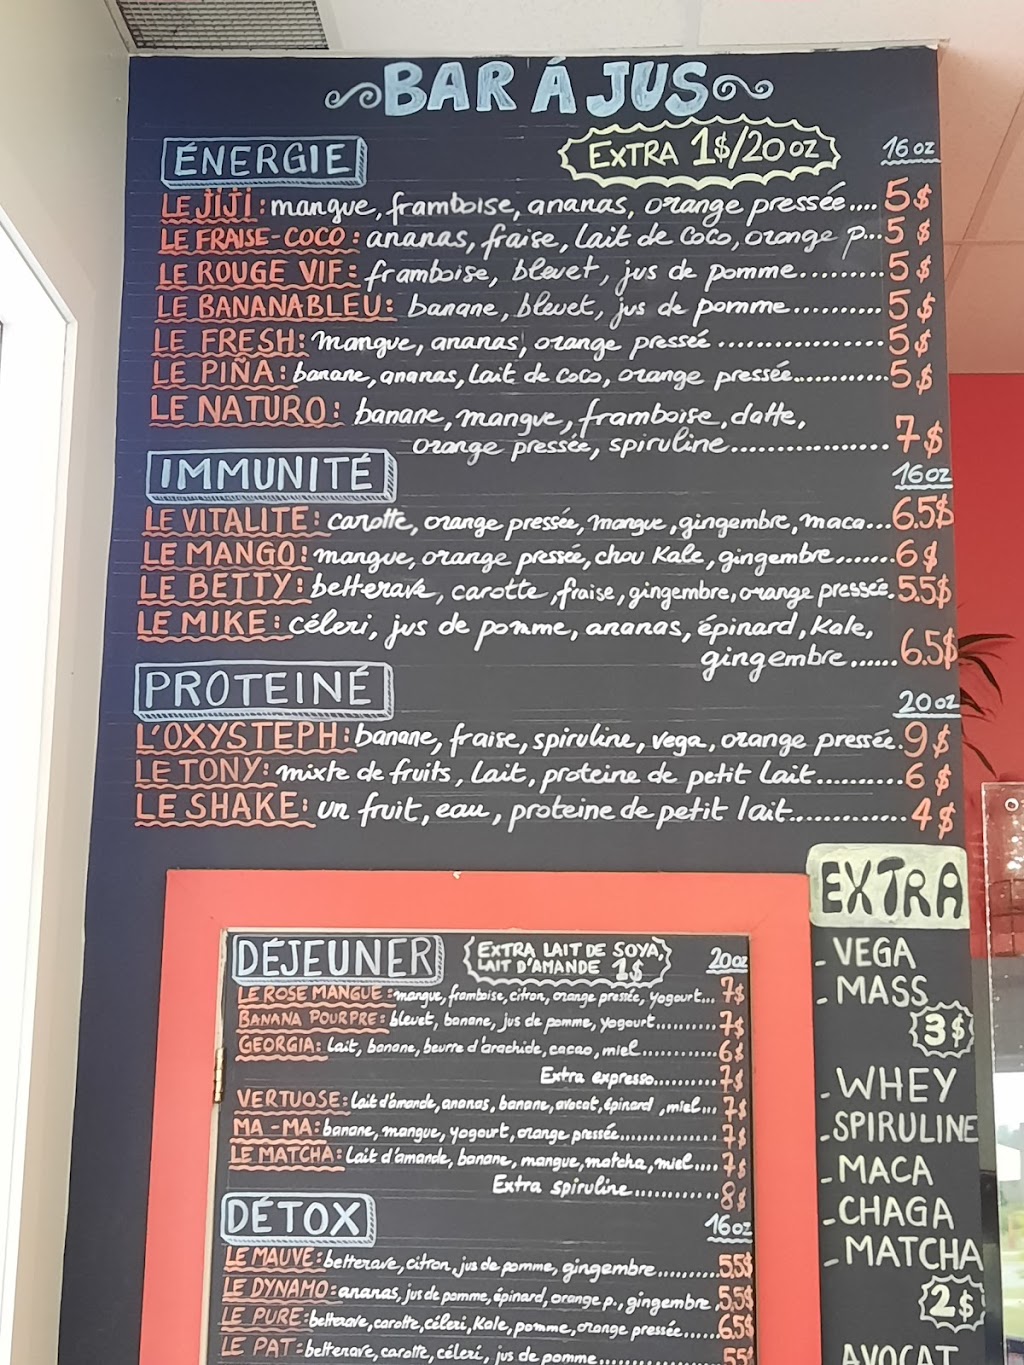 BAR À JUS
ÉNERGIE
EXTRA 1$/20 oz
16 oz
LE JIJI : mangue, framboise, ananas, orange pressée.... 5$
LE FRAISE-COCO : ananas, fraise, lait de coco, orange p...5 $
LE ROUGE VIF : framboise, bleuet, jus de pomme.........5 $
LE BANANABLEU : banane, bleuet, jus de pomme..........5$
LE FRESH : mangue, ananas, orange pressée ..................5$
LE PIÑA : banane, ananas, lait de coco, orange pressée............5$
LE NATURO : banane, mangue, framboise, datte,
orange pressée, spiruline.................7$
IMMUNITÉ
16 oz
LE VITALITE : carotte, orange pressée, mangue, gingembre, maca...6.5$
LE MANGO : mangue, orange pressée, chou Kale, gingembre.......6$
LE BETTY : betterave, carotte, fraise, gingembre, orange pressée.5.5$
LE MIKE : céleri, jus de pomme, ananas, épinard, Kale,
gingembre......6.5$
PROTEINÉ
20 oz
L'OXYSTEPH : banane, fraise, spiruline, vega, orange pressée.9$
LE TONY : mixte de fruits, lait, proteine de petit lait..........6 $
LE SHAKE : un fruit, eau, proteine de petit lait.............4$
EXTRA
- VEGA
- MASS
3$
- WHEY
- SPIRULINE
- MACA
- CHAGA
- MATCHA
2$
AVOCAT
DÉJEUNER
EXTRA LAIT DE SOYA,
LAIT D'AMANDE 1$
20 oz
LE ROSE MANGUE : mangue, framboise, citron, orange pressée, yogourt... 7$
BANANA POURPRE : bleuet, banane, jus de pomme, yogourt..........7$
GEORGIA : lait, banane, beurre d'arachide, cacao, miel............6$
Extra expresso..........7$
VERTUOSE : lait d'amande, ananas, banane, avocat, épinard, miel... 7$
MA-MA : banane, mangue, yogourt, orange pressée................7$
LE MATCHA : Lait d'amande, banane, mangue, matcha, miel.... 7$
Extra spiruline............8$
DÉTOX
16 oz
LE MAUVE : betterave, citron, jus de pomme, gingembre..........5.5$
LE DYNAMO : ananas, jus de pomme, épinard, orange p., gingembre .5.5$
LE PURE : betterave, carotte, céleri, Kale, pomme, orange pressée......6.5$
LE PAT : betterave, carotte, céleri, jus de pomme..................